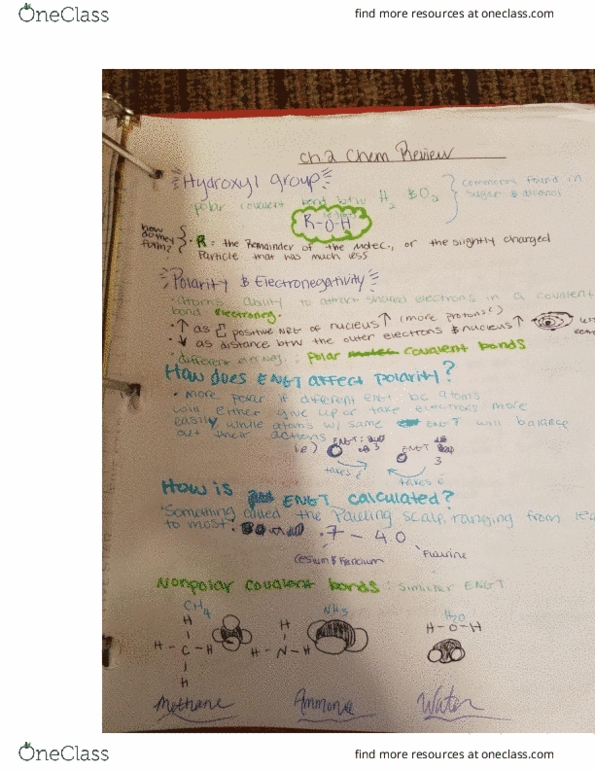 OneClass
find more resources at oneclass.com
Ch 2 Chem Review
Hydroxyl group
polar covalent bond btw H2 & O2
commonly found in
sugar & alcohol
R-O-H
how
do they
form?
• R = the Remainder of the molec., or the slightly charged
Particle that has much less
Polarity & Electronegativity
• atoms ability to attract shared electrons in a covalent
bond electroneg.
• ↑ as positive of nucleus ↑ (more protons)
• ↓ as distance btw the outer electrons & nucleus ↑
• different : Polar covalent bonds
How does ENGT affect polarity?
• more polar if different ENGT bc atoms
will either give up or take electrons more
easily, while atoms w/ same ENGT will balance
out their actions
ie)
ENGT:
3
ENGT
3
takes e
takes e
How is ENGT calculated?
• Something called the Pauling scale, ranging from
to most: .7 - 4.0
Cesium & Francium
Fluorine
Nonpolar covalent bonds : similar ENGT
CH4
NH3
H2O
H
H
H-O-H
H-C-H
H-N-H
H
Methane
Ammonia
Water
OneClass
find more resources at oneclass.com